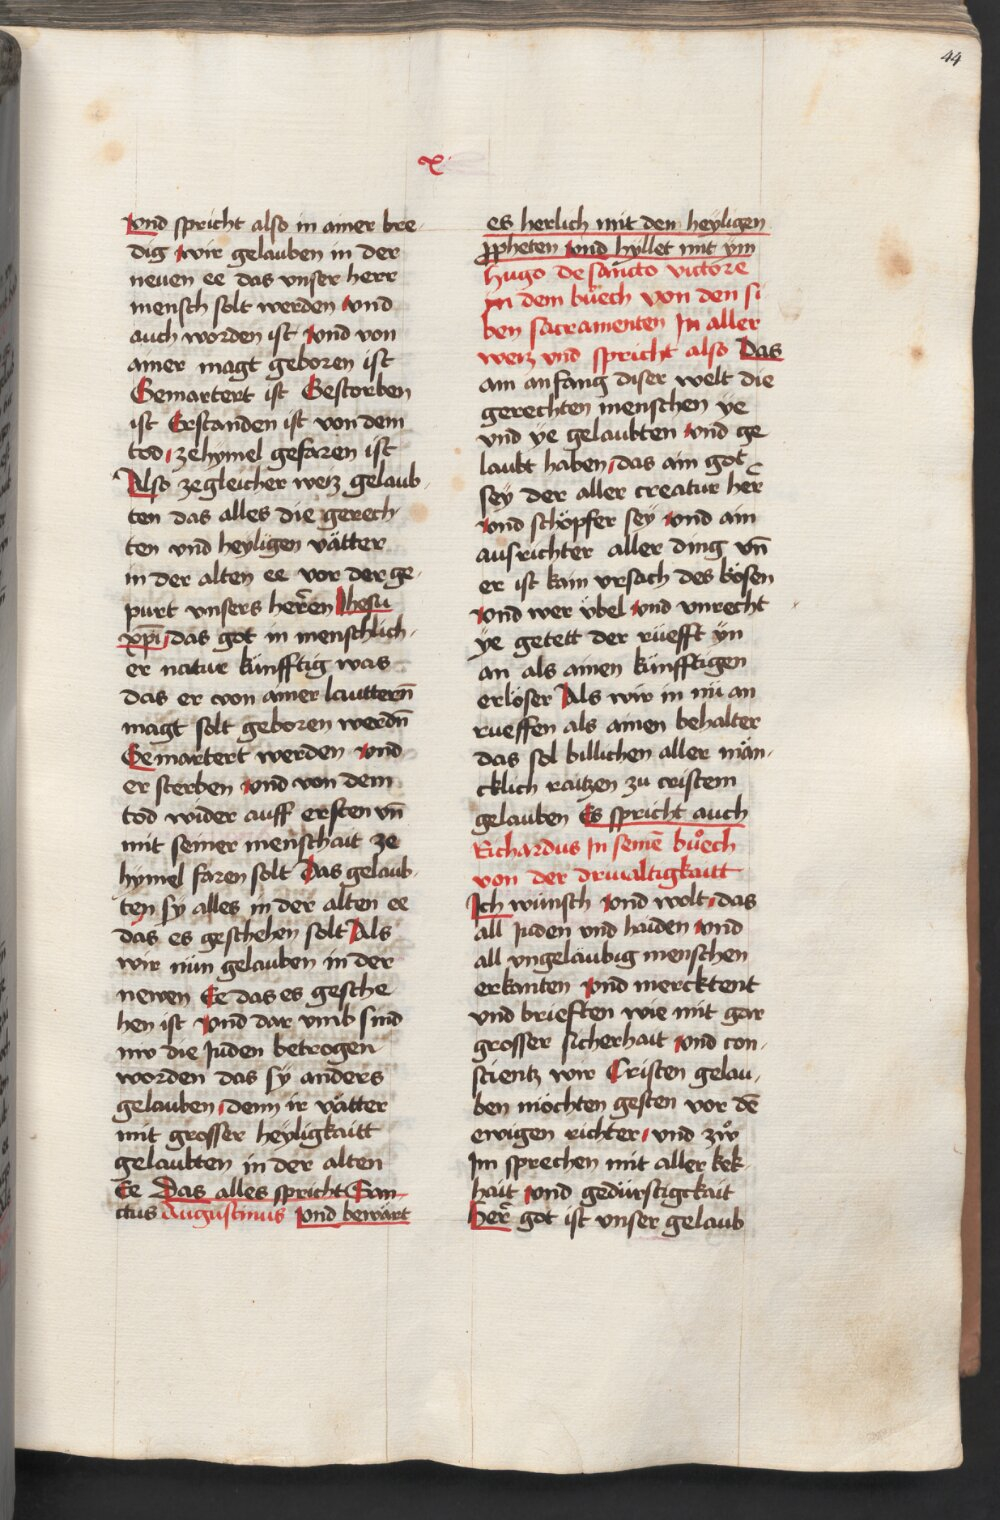 44
x
Vnd spricht also in ainer bre-
dig wir gelauben in der
neuen ee das vnser herr
mensch solt werden vnd
auch worden ist vnd von
ainer magt geboren ist
Gemartert ist Gestorben
ist Erstanden ist von dem
tod, ze hymel gefaren ist
Also ze gleicher weiz gelaub-
ten das alles die gerech
ten vnd heyligen vätter
in der alten ee vor der ge-
purt vnsers herren Jhesu
xpi, das got in menschlich-
er natur künfftig was
das er von ainer lautterñ
magt solt geboren werdñ
Gemartert werden vnd
er sterben vnd von dem
tod wider auff ersten vñ
mit seiner menschait ze
hymel faren solt Das gelaub-
ten sy alles in der alten ee
das es geschehen solt Als
wir nün gelauben in der
newen Ee das es gesche
hen ist vnd dar vmb sind
nw die Juden betrogen
worden das sy anders
gelauben, denn ir vätter
mit grosser heyligkaitt
gelaubten in der alten
Ee Das alles spricht San-
ctus Augustinus vnd bewärt
es herlich mit den heyligen
ppheten vnd hyllet mit ym
Hugo de sancto victore
jn dem büech von den si
ben sacramenten Jn aller
weiz vnd spricht also Das
am anfang diser welt die
gerechten menschen ye
vnd ye gelaubten vnd ge
laubt haben, das ain got
sey der aller creatur her̃
vnd schöpfer sey vnd ain
ausrichter aller ding vñ
er ist kain vrsach des bösen
vnd wer übel vnd vnrecht
ye getett der rüefft yn
an als ainen künfftigen
erlöser Als wir in nü an
rueffen als ainen behalter
das sol billichen aller män-
cklich raitzen zu cristem
gelauben Es spricht auch
Richardus Jn seinē buͦech
von der driualtigkaitt
Jch wünsch vnd wolt, das
all Juden vnd haiden vnd
all vngeläubig menschen
erkanten vnd mercktent
vnd brieften wie mit gar
grosser sicherhait vnd con-
scientz wir Cristen gelau-
ben möchten gesten vor dē
ewigen richter, vnd zwͦ
Jm sprechen mit aller kek-
hait vnd gedürstigckait
Her̃ got ist vnser gelaub